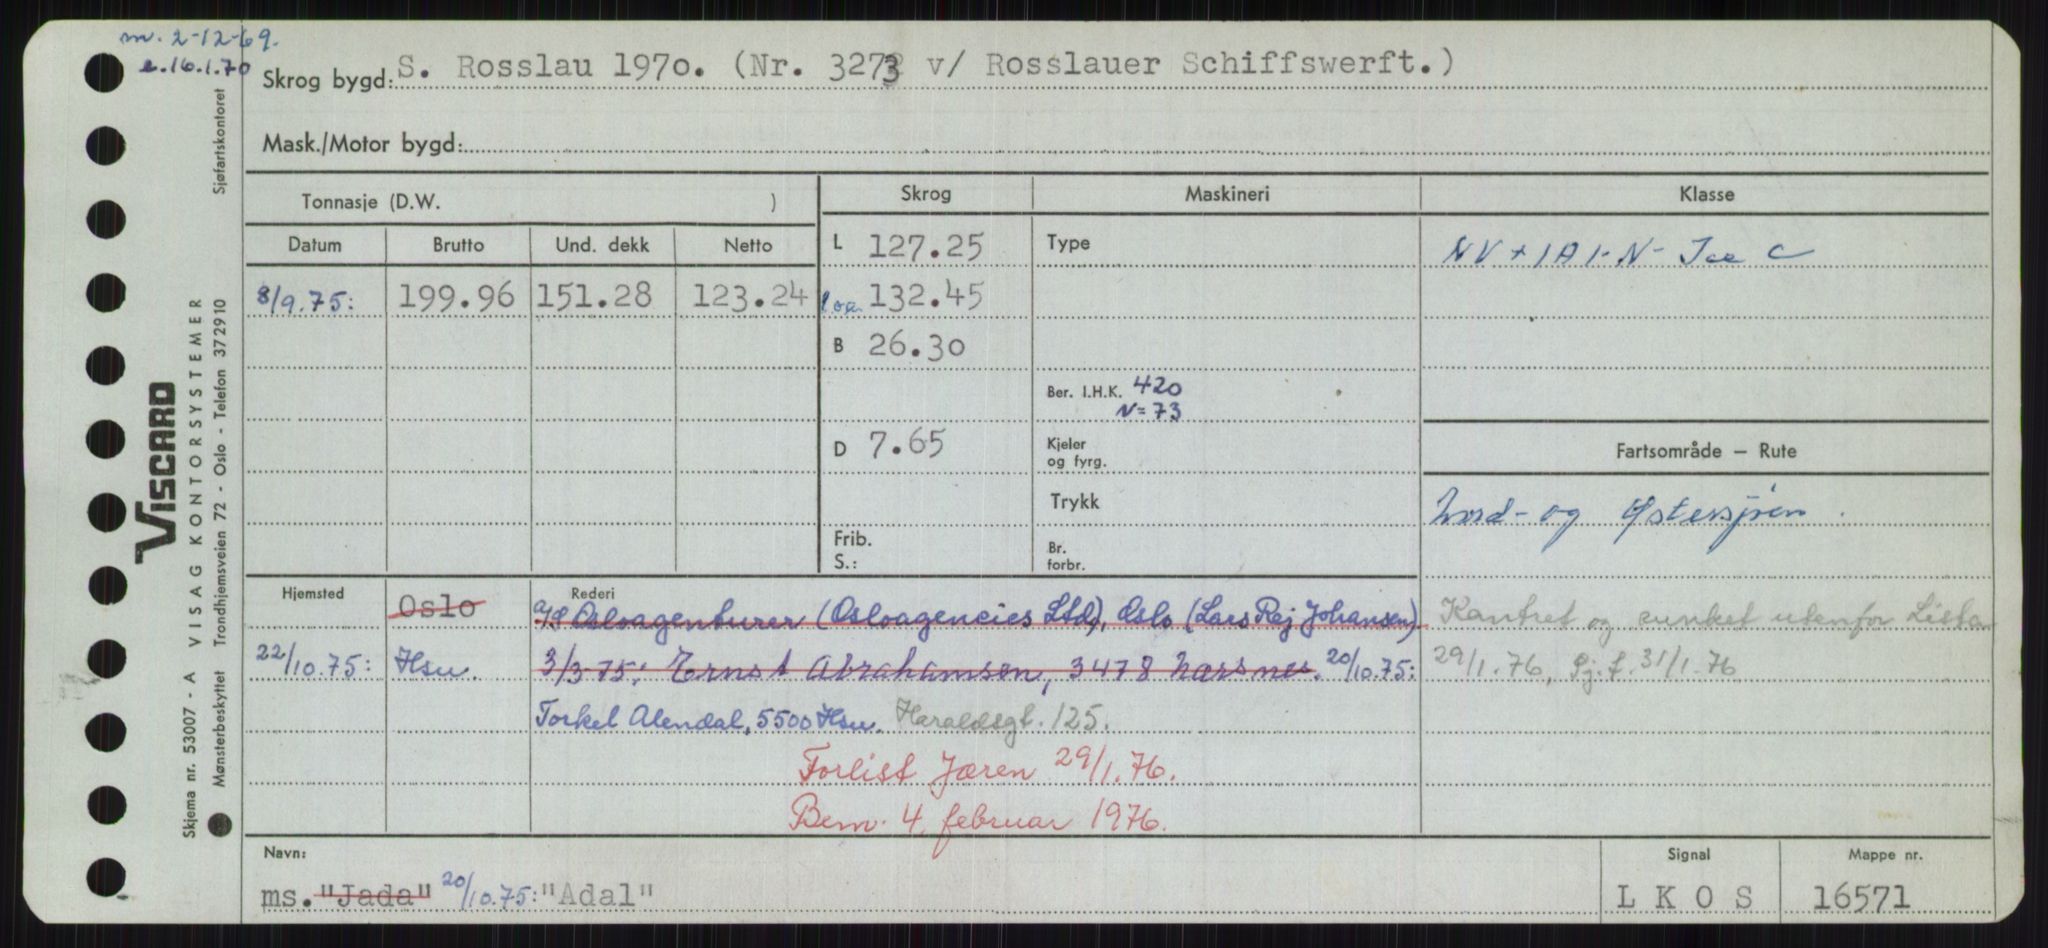 m. 2-12-69.
e.16.1.70
Skrog bygd: S. Rosslau 1970. (Nr. 3273 v/ Rosslauer Schiffswerft.)
Mask./Motor bygd:
Tonnasje (D.W. )
Skrog
Maskineri
Klasse
Datum Brutto Und. dekk Netto
L 127.25
Type
NV + 1A1-N- Ice C
8/9.75: 199.96 151.28 123.24
loa. 132.45
B 26.30
Ber. I.H.K. 420
N=73
D 7.65
Kjeler
og fyrg.
Fartsområde – Rute
Trykk
Nord- og Østersjøen.
Frib.
S.:
Br.
forbr.
Hjemsted
Oslo
Rederi
A/S Osloagenturer (Osloagencies Ltd), Oslo (Lars Rej Johansen).
Kantret og sunket utenfor Lista
22/10.75: Hsu.
3/3-75: Ernst Abrahamsen, 3478 Nærsnes. 20/10.75:
29/1.76, Sj.f. 31/1.76
Torkel Alendal, 5500 Hsu. Haraldsgt. 125.
Forlist Jæren 29/1.76.
Bem. 4. februar 1976.
Navn:
ms. "Jada" 20/10.75: "Adal"
Signal
L K O S
Mappe nr.
16571
VISCARD
Skjema nr. 53007 - A VISAG KONTORSYSTEMER
Mønsterbeskyttet Trondhjemsveien 72 - Oslo - Telefon 372910 Sjøfartskontoret